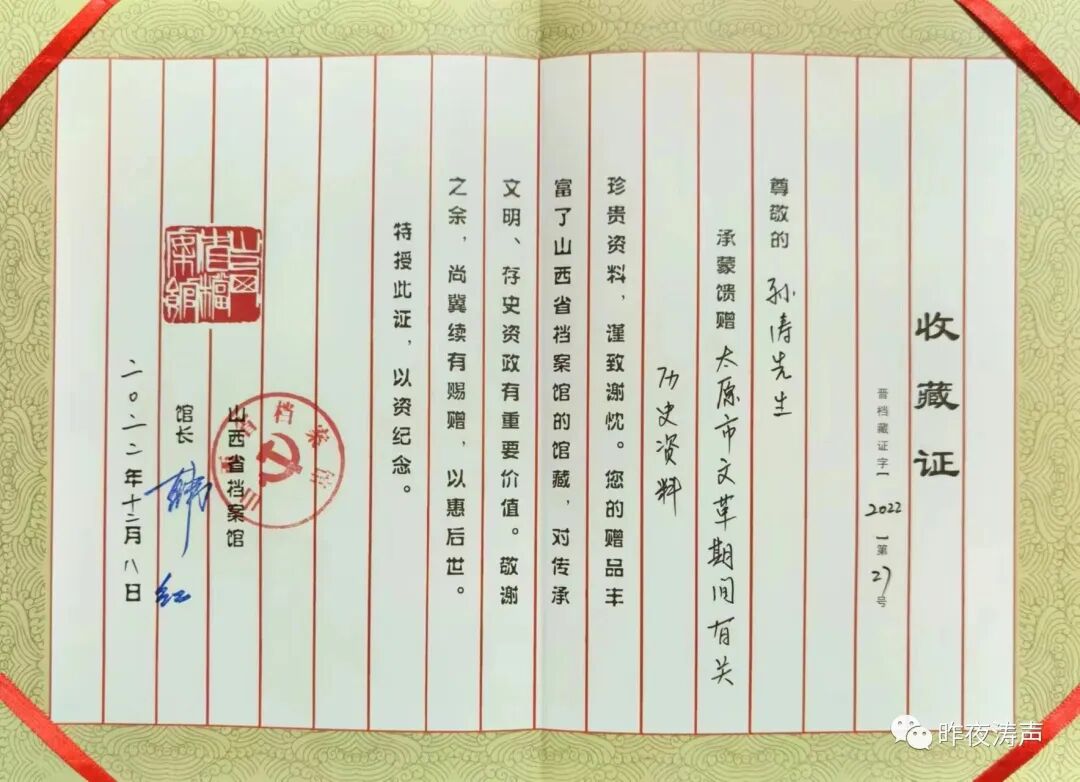 收藏证
晋档藏证字【2022】第27号
尊敬的 孙涛先生
承蒙馈赠 太原市文革期间有关
历史资料
珍贵资料，谨致谢忱。您的赠品丰
富了山西省档案馆的馆藏，对传承
文明、存史资政有重要价值。敬谢
之余，尚冀续有赐赠，以惠后世。
特授此证，以资纪念。
山西省档案馆
山西省档案馆
馆长 韩红
山西省档案馆
二〇二二年十二月八日
昨夜涛声